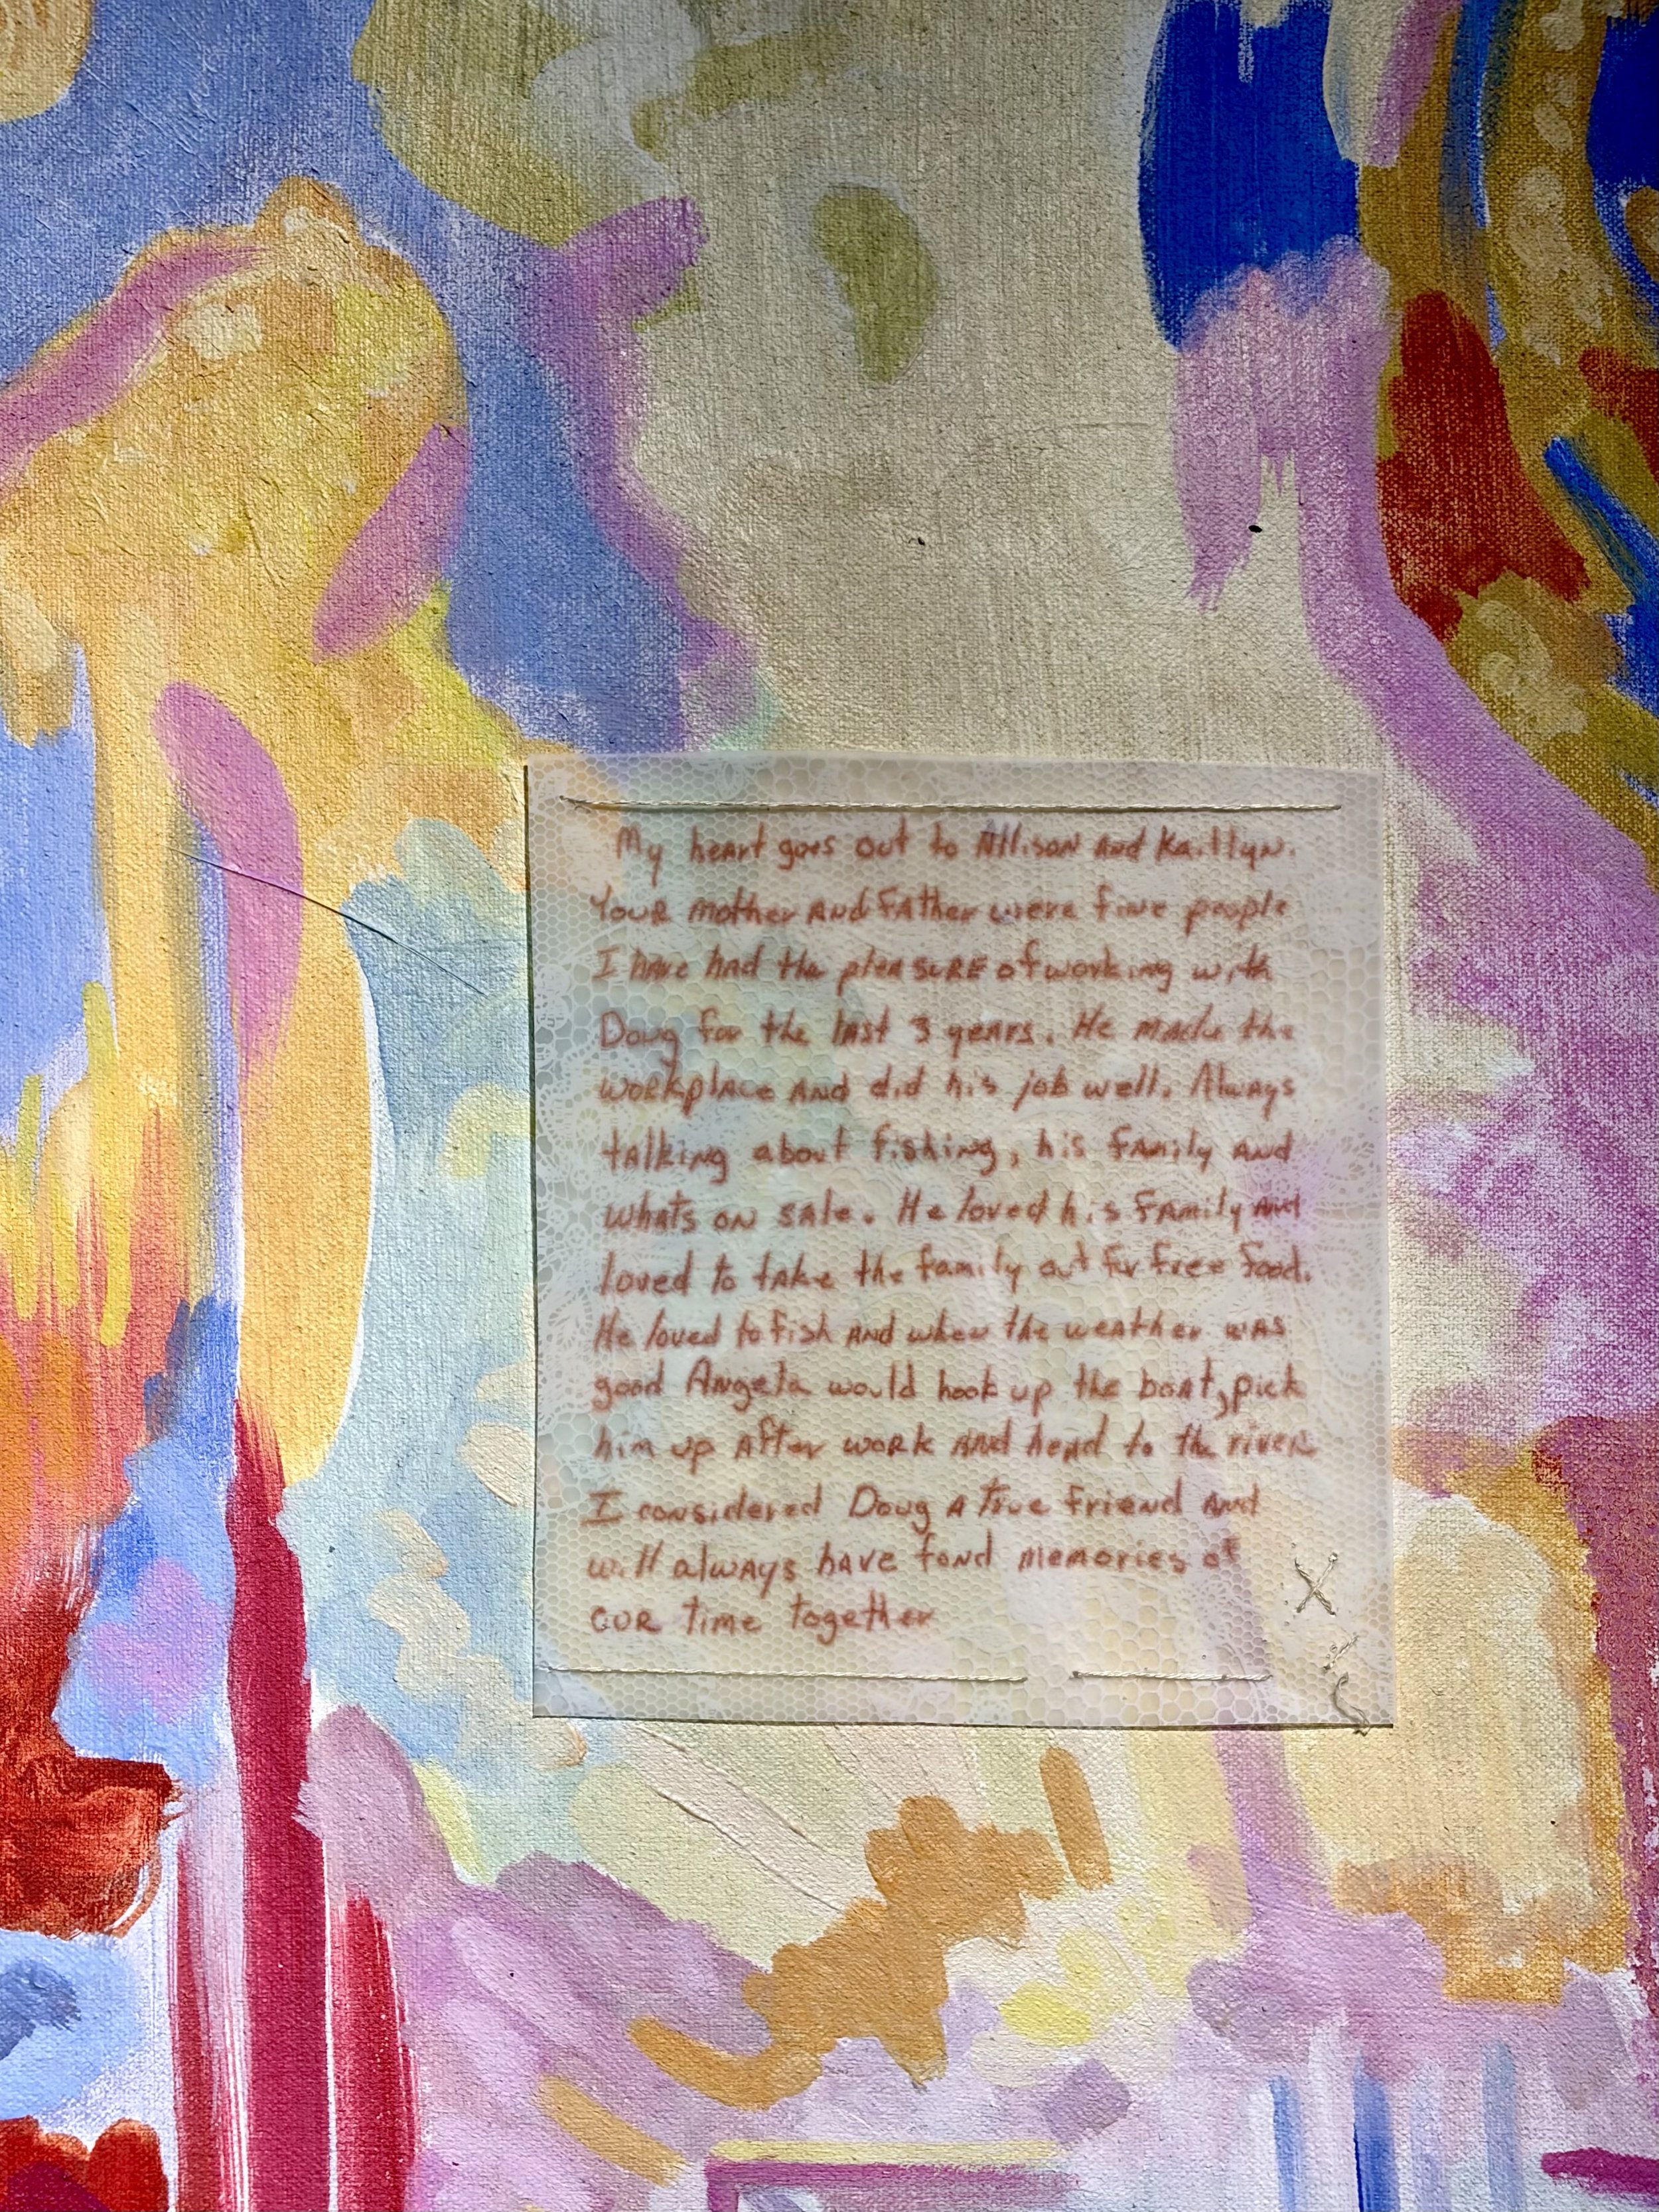 My heart goes out to Allison and Kaitlyn.
Your mother and Father were fine people
I have had the pleasure of working with
Doug for the last 3 years. He made the
workplace and did his job well. Always
talking about fishing, his family and
whats on sale. He loved his family and
loved to take the family out for free food.
He loved to fish and when the weather was
good Angela would hook up the boat, pick
him up after work and head to the river
I considered Doug a true friend and
will always have fond memories of
our time together